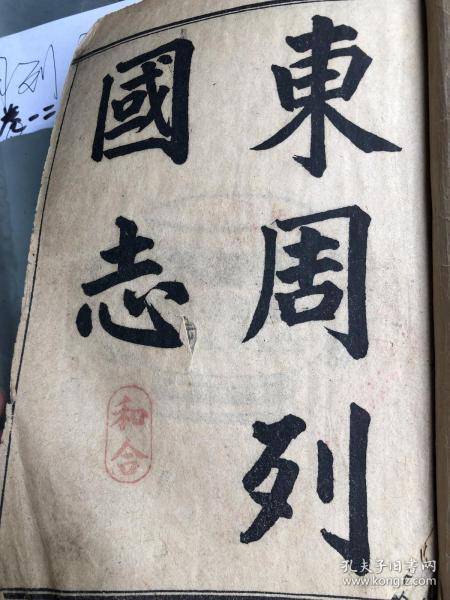 東周列
國志
和合
列
卷一二
孔夫子旧书网
www.kongfz.com